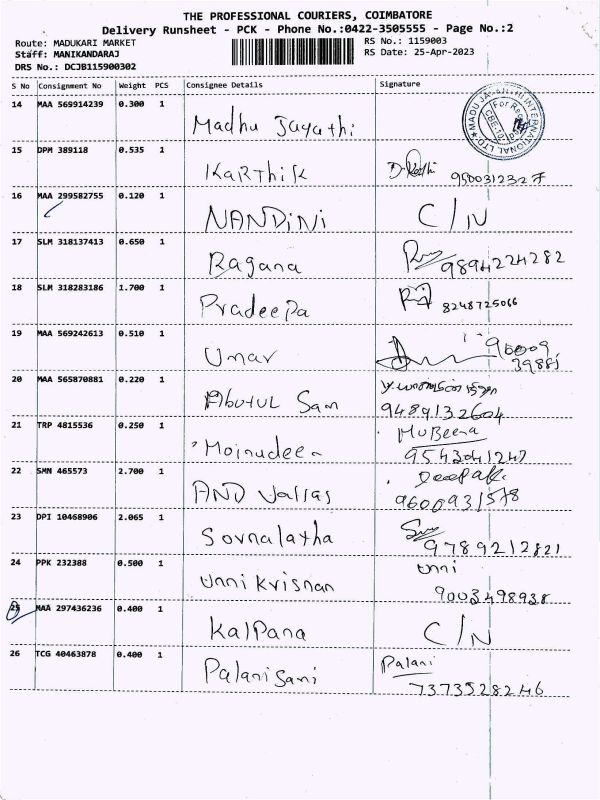 THE PROFESSIONAL COURIERS, COIMBATORE
Delivery Runsheet - PCK - Phone No.:0422-3505555 - Page No.:2
Route: MADUKARI MARKET
RS No.: 1159003
Staff: MANIKANDARAJ
RS Date: 25-Apr-2023
DRS No.: DCJB115900302
S No Consignment No Weight PCS Consignee Details Signature
14 MAA 569914239 0.300 1
Madhu Jayathi
15 DPM 389118 0.535 1
Karthik 9500312327
16 MAA 299582755 0.120 1
NANDINI C/N
17 SLM 318137413 0.650 1
Ragana 9894224282
18 SLM 318283186 1.700 1
Pradeepa 8248725066
19 MAA 569242613 0.510 1
Umar 96009
39885
20 MAA 565870881 0.220 1
Abutul Sam 9489132604
21 TRP 4815536 0.250 1 MuBeena
Moinudeen 9543041247
22 SMN 465573 2.700 1 Deepak
AND Vallas 9600931578
23 DPI 10468906 2.065 1
Sovnalatha 9789212821
24 PPK 232388 0.500 1 Unni
Unni Krisnan 9003498938
25 MAA 297436236 0.400 1
Kalpana C/N
26 TCG 40463878 0.400 1 Palani
Palanisami 7373528246